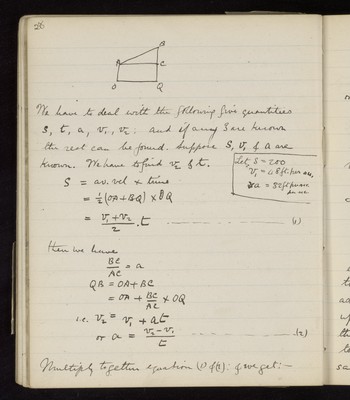 26
B
A C
O Q
We have to deal with the following five quantities
S, t, a, v₁, v₂ : and if any 3 are known
the rest can be found. Suppose S, v₁ & a are
known. We have to find v₂ & t.
Let S = 200
v₁ = 48 ft. per sec.
a = 32 ft per sec.
per sec.
S = av. vel × time
= ½ (OA + BQ) × OQ
= (v₁ + v₂)/2 . t (1)
then we have
BC/AC = a
QB = OA + BC
= OA + BC/AC × OQ
i.e. v₂ = v₁ + at
or a = (v₂ - v₁)/t (2)
Multiply together equation (1) & (2) : & we get :-